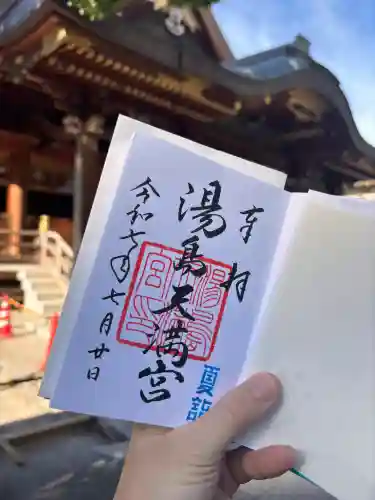 湯島天満宮
令和七年七月廿日
夏詣